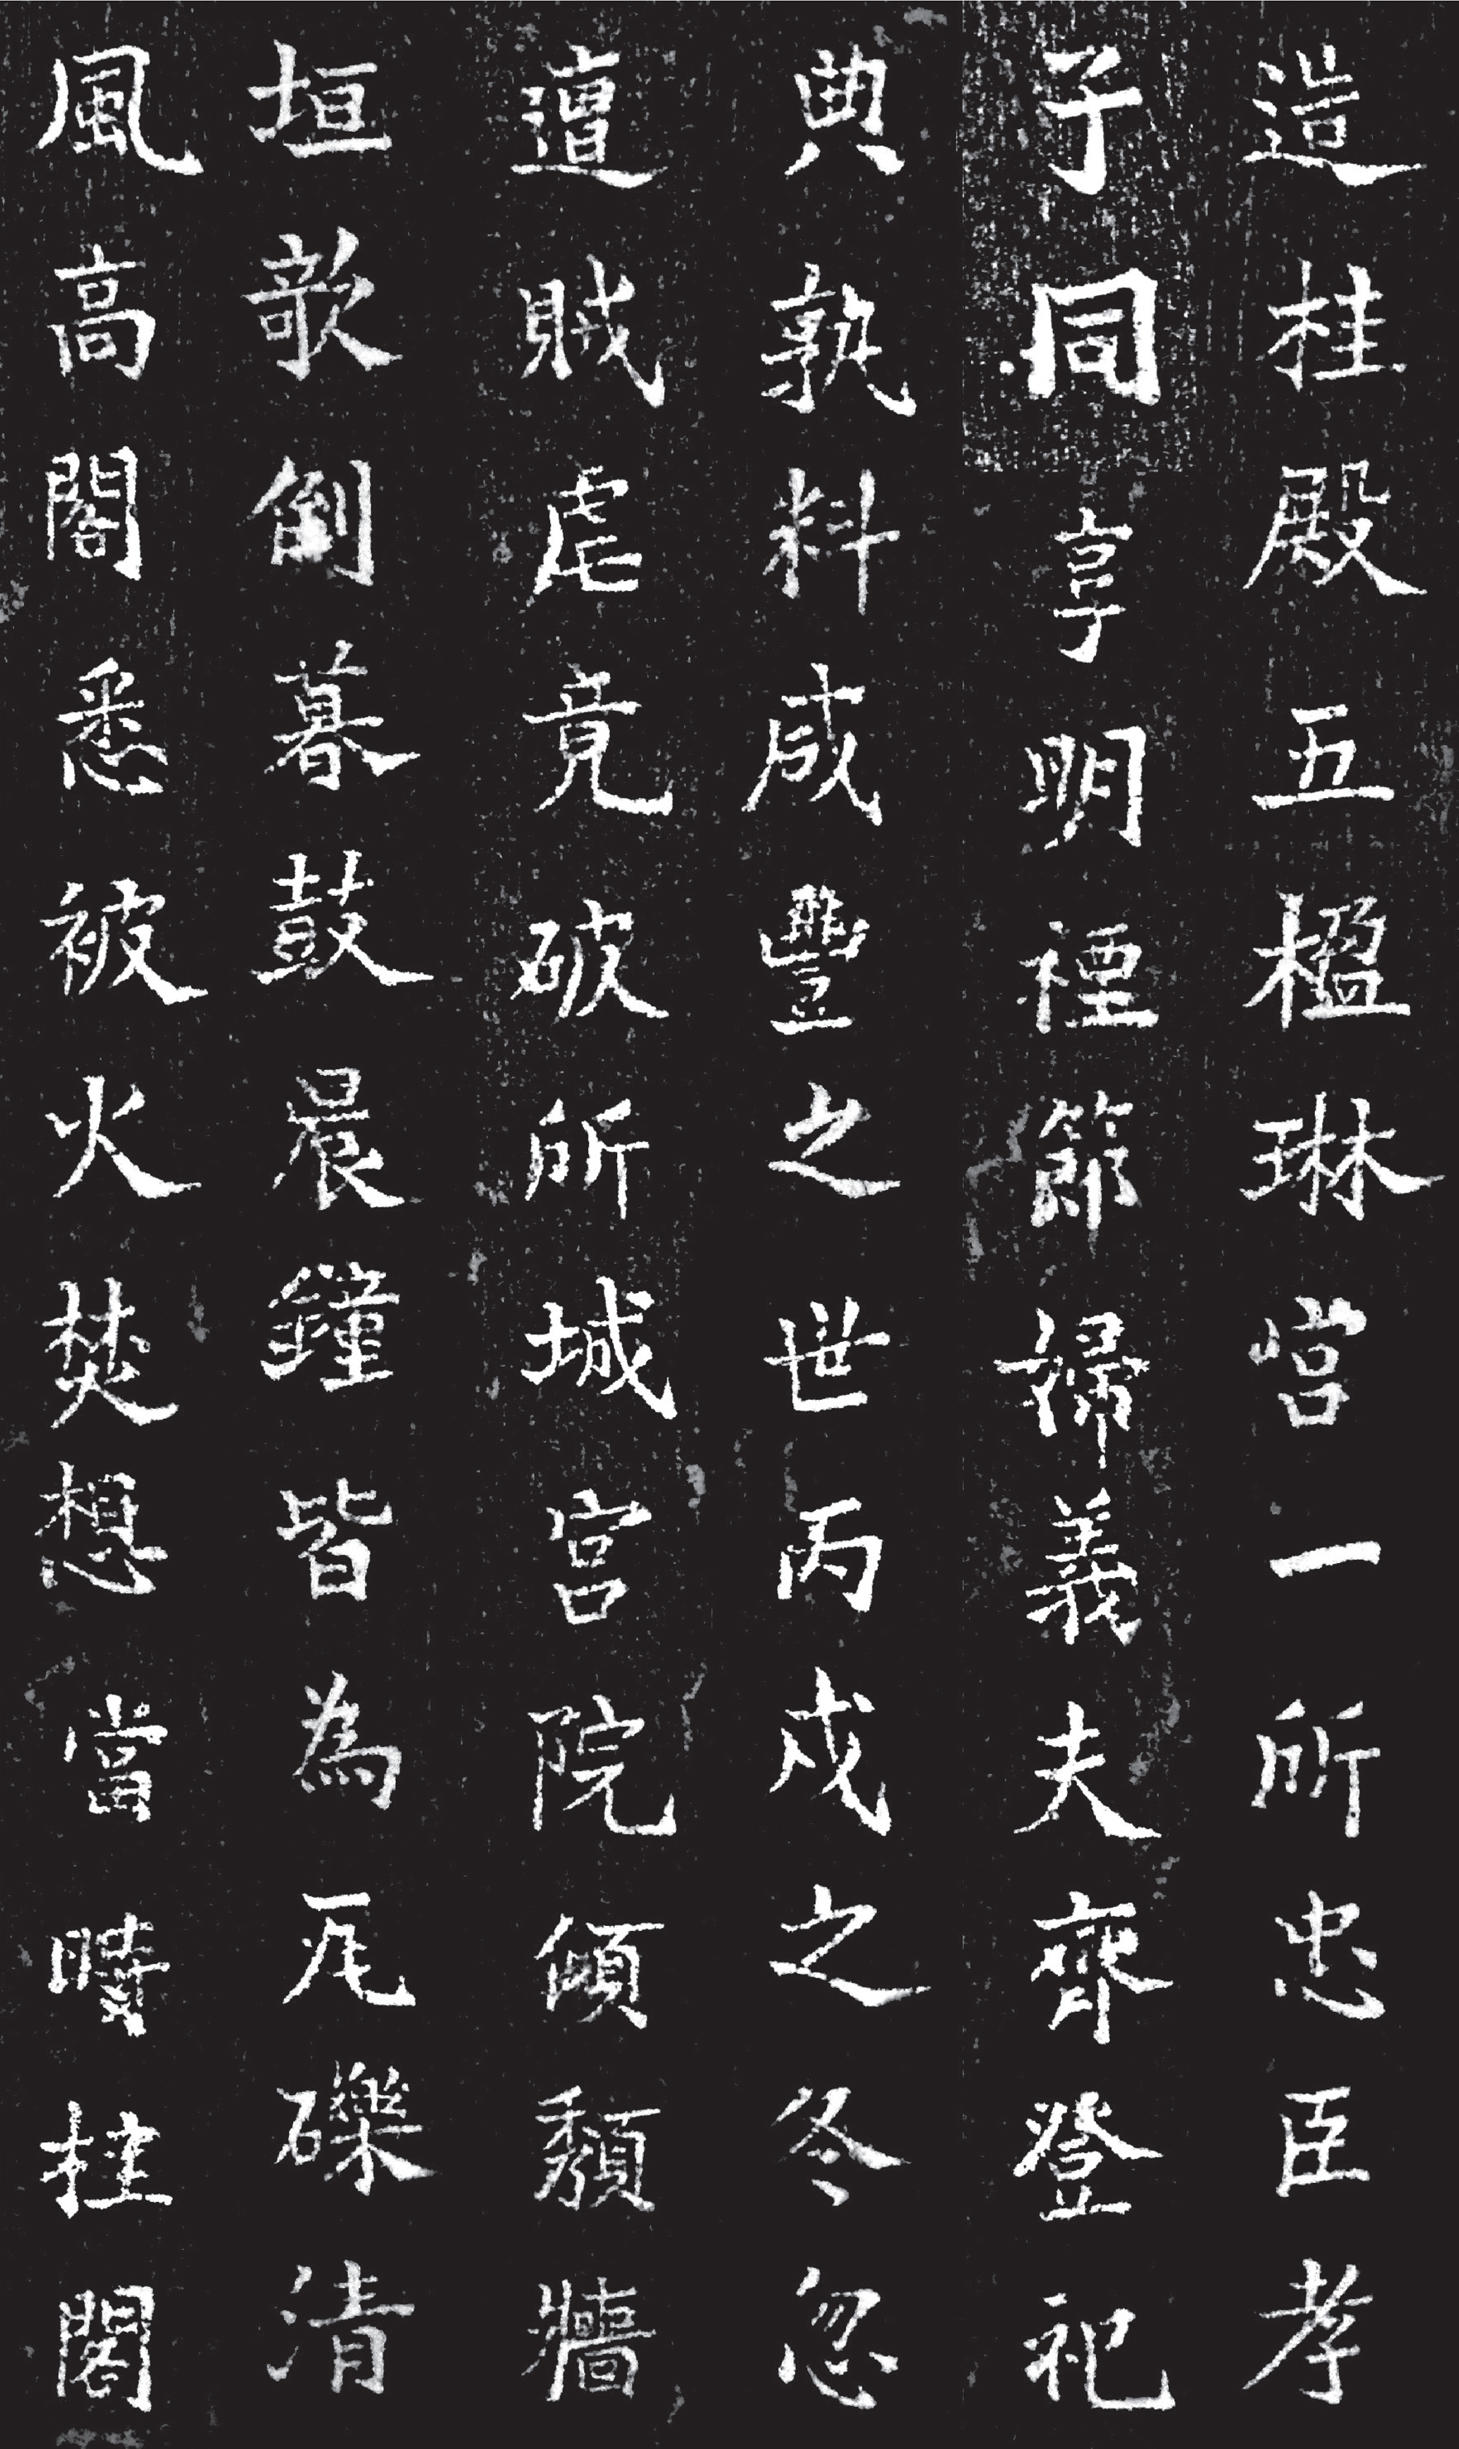 造桂殿五楹琳宮一所忠臣孝
子同享明禋節婦義夫齊登祀
典孰料咸豐之世丙戌之冬忽
遭賊虐竟破所城宮院傾頹牆
垣欹倒暮鼓晨鐘皆為瓦礫清
風高閣悉被火焚想當時挂閣